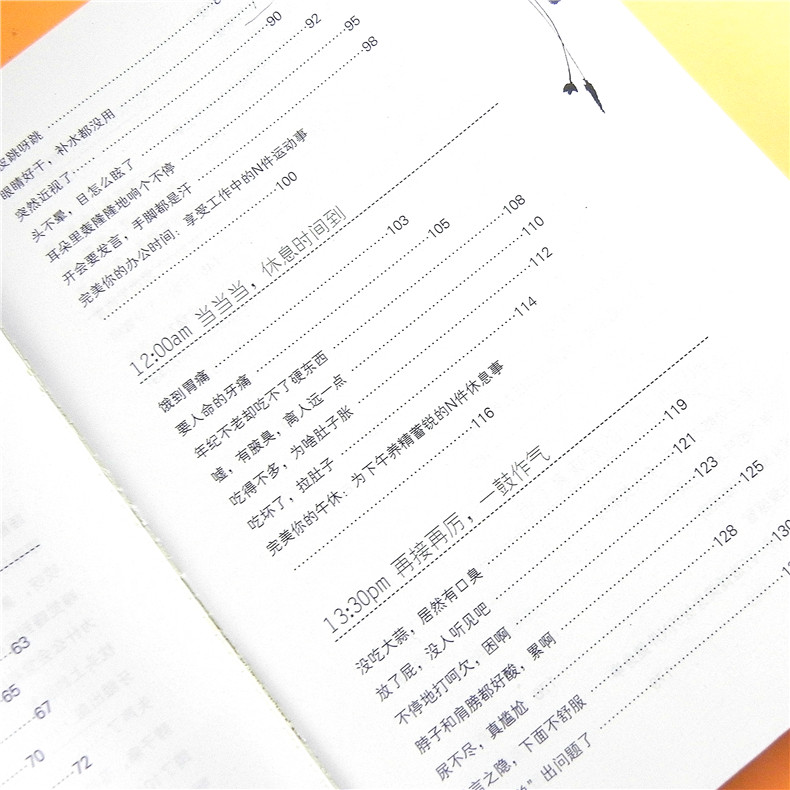 皮跳呀跳
眼睛好干，补水都没用
突然近视了 90
头不晕，目怎么眩了 92
耳朵里轰隆隆地响个不停 95
开会要发言，手脚都是汗 98
完美你的办公时间：享受工作中的N件运动事
100
12:00am 当当当，休息时间到
饿到胃痛 103
要人命的牙痛 105
年纪不老却吃不了硬东西 108
嘘，有腋臭，离人远一点 110
吃得不多，为啥肚子胀 112
吃坏了，拉肚子 114
完美你的午休：为下午养精蓄锐的N件休息事
116
13:30pm 再接再厉，一鼓作气
没吃大蒜，居然有口臭 119
放了屁，没人听见吧 121
不停地打呵欠，困啊 123
脖子和肩膀都好酸，累啊 125
尿不尽，真尴尬 128
言之隐，下面不舒服 130
”出问题了
63
65
67
70
72